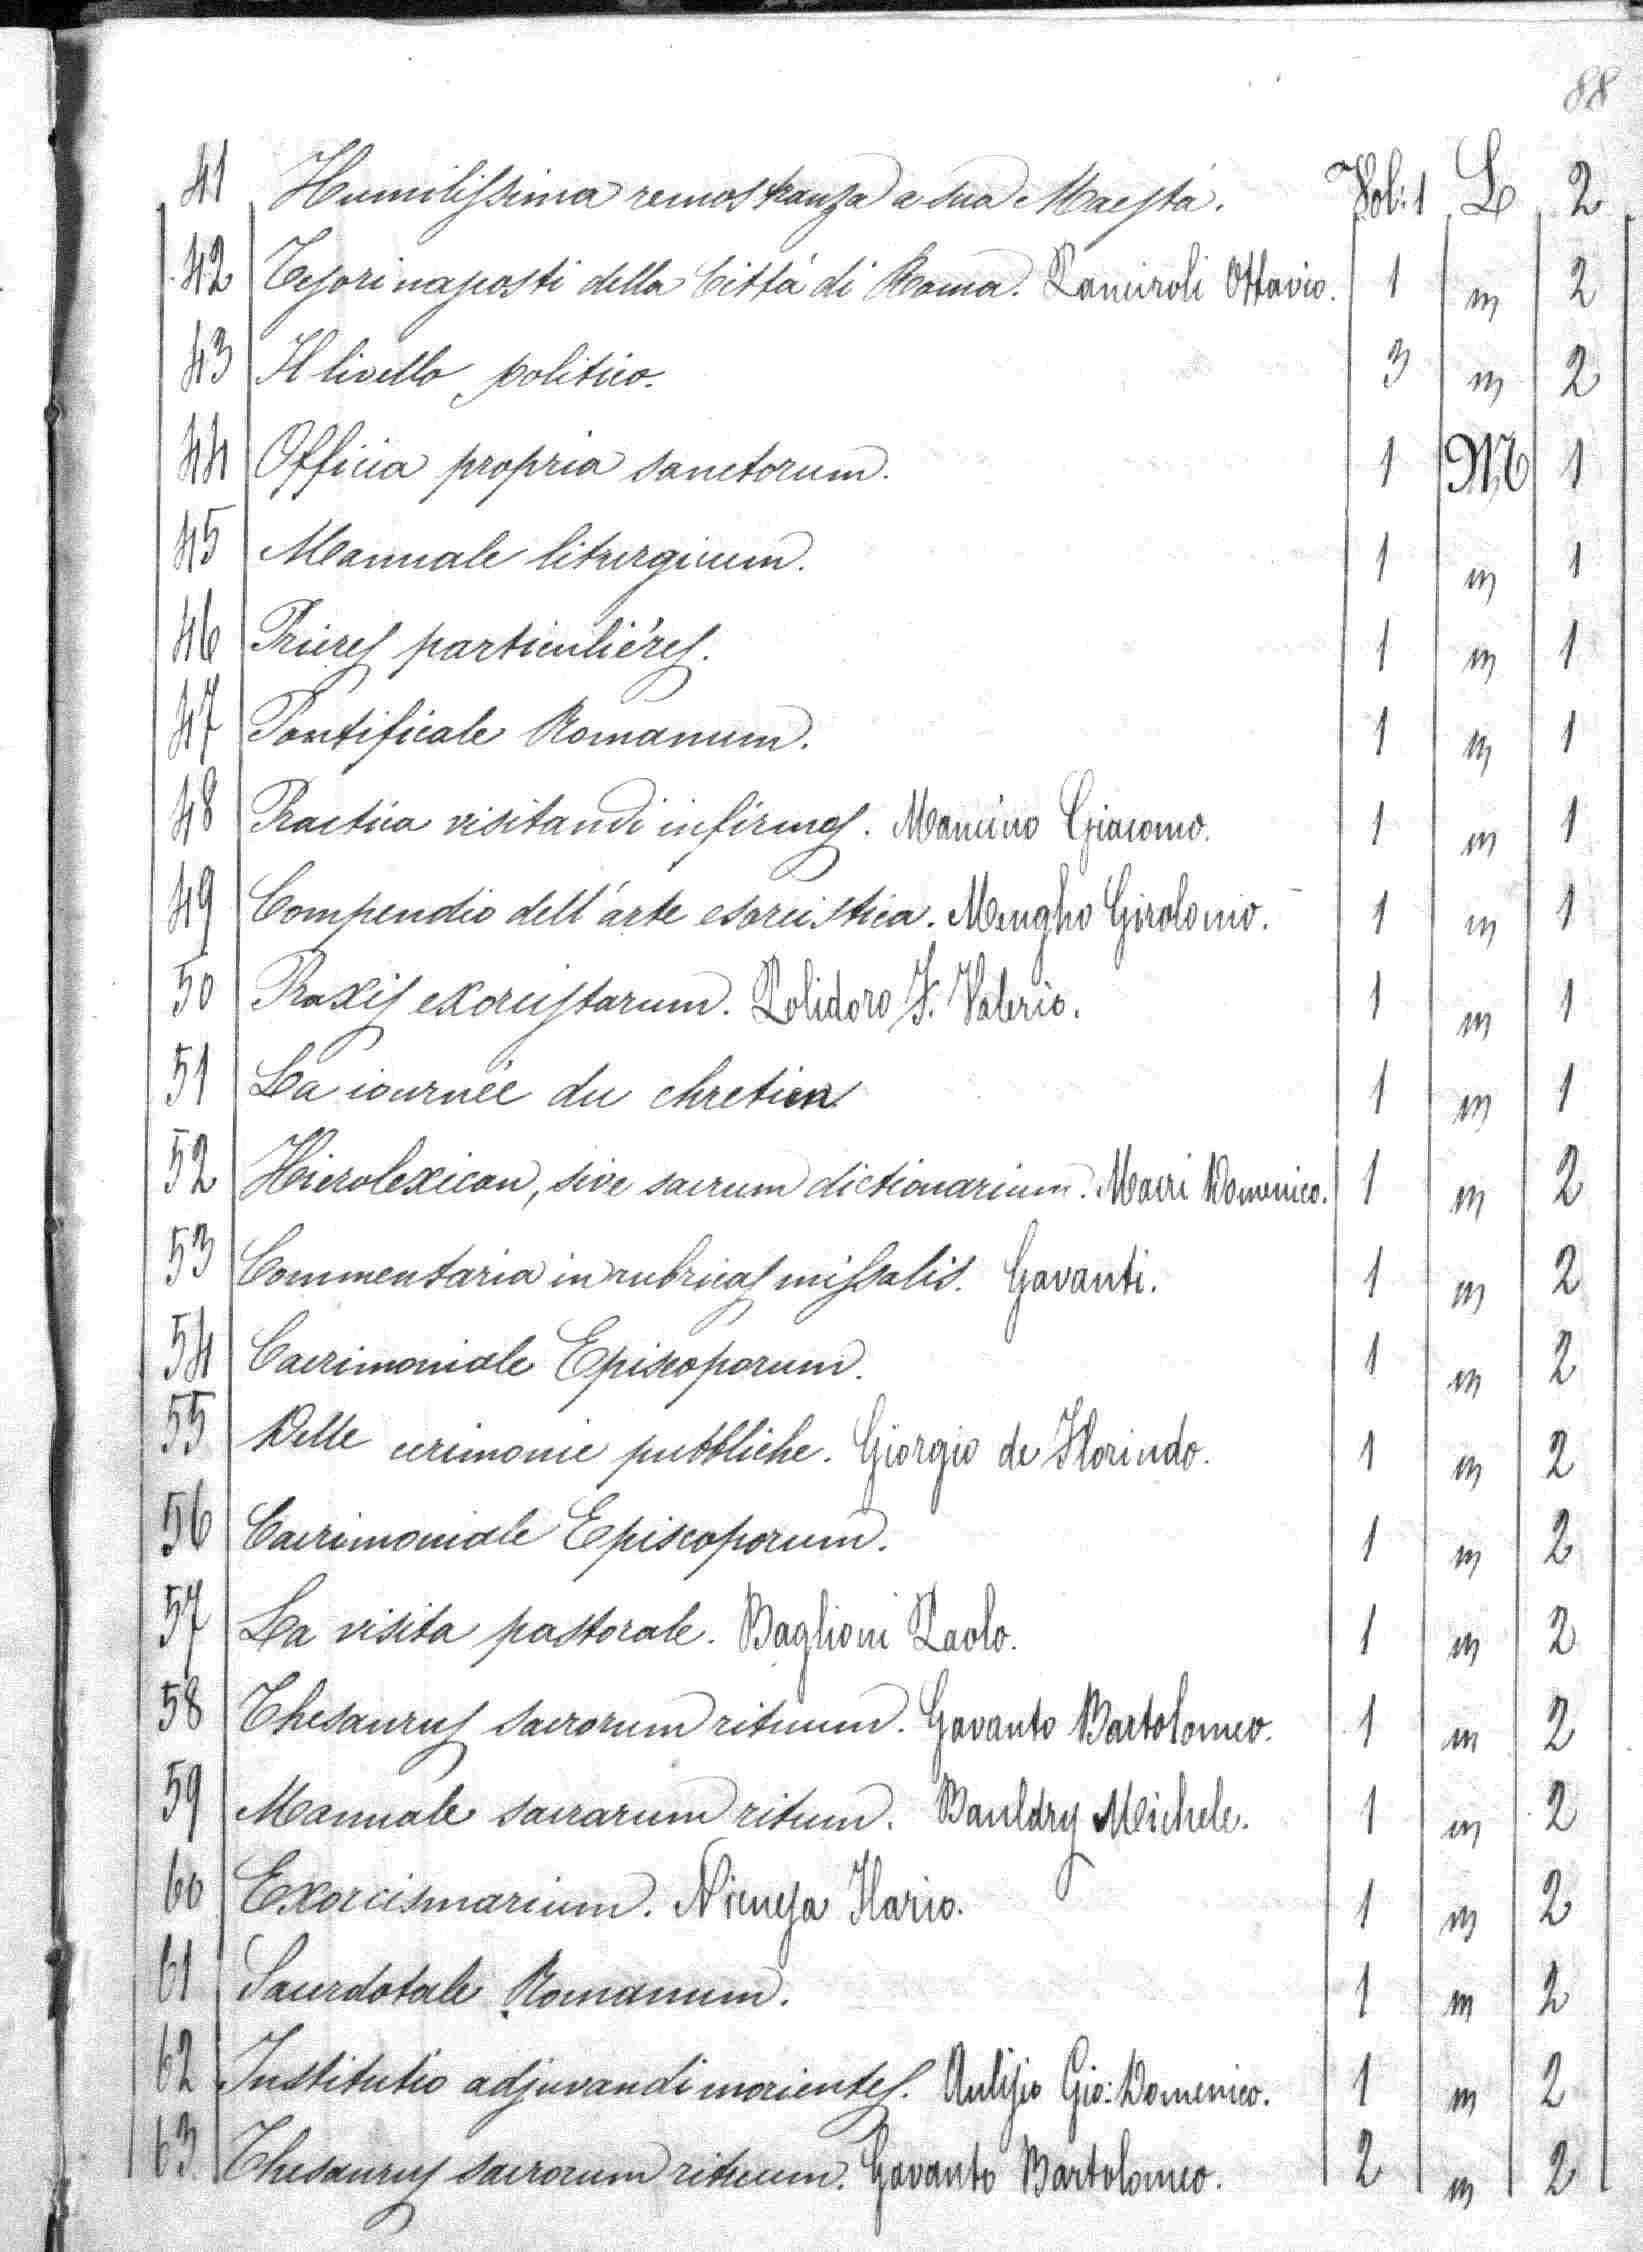 88
41 Humilissima remostranza a sua Maestá. Vol: 1 L 2
42 Tesori nascosti della Cittá di Roma. Panciroli Ottavio. 1 m 2
43 Il livello politico. 3 m 2
44 Officia propria sanctorum. 1 M 1
45 Manuale liturgicum. 1 m 1
46 Prieres particuliéres. 1 m 1
47 Pontificale Romanum. 1 m 1
48 Practica visitandi infirmos. Mancino Giacomo. 1 m 1
49 Compendio dell'arte esorcistica. Mengho Girolomo. 1 m 1
50 Praxis exorcistarum. Polidoro F. Valerio. 1 m 1
51 La iournée du chretien 1 m 1
52 Hierolexicon, sive sacrum dictionarium. Macri Domenico. 1 m 2
53 Commentaria in rubricas missalis. Gavanti. 1 m 2
54 Caerimoniale Episcoporum. 1 m 2
55 Delle cerimonie pubbliche. Giorgio de Florindo. 1 m 2
56 Caerimoniale Episcoporum. 1 m 2
57 La visita pastorale. Baglioni Paolo. 1 m 2
58 Thesaurus sacrorum rituum. Gavanto Bartolomeo. 1 m 2
59 Manuale sacrarum ritum. Bauldry Michele. 1 m 2
60 Exorcismarium. Ilario. 1 m 2
61 Sacerdotale Romanum. 1 m 2
62 Institutio adjuvandi morientes. Aulisio Gio: Domenico. 1 m 2
63 Thesaurus sacrorum rituum. Gavanto Bartolomeo. 2 m 2